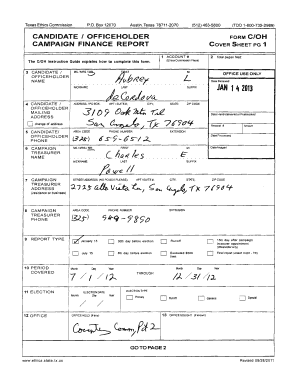 Texas Ethics Commission P.O. Box 12070 Austin, Texas 78711-2070 (512) 463-5800 (TDD 1-800-735-2989)
CANDIDATE / OFFICEHOLDER
CAMPAIGN FINANCE REPORT
FORM C/OH
COVER SHEET PG 1
The C/OH Instruction Guide explains how to complete this form.
1 ACCOUNT #
2 Total pages filed
3 CANDIDATE / OFFICEHOLDER NAME
FIRST MI
Aubrey L
NICKNAME LAST SUFFIX
deCordova
OFFICE USE ONLY
Date Received
JAN 14 2013
4 CANDIDATE / OFFICEHOLDER MAILING ADDRESS
change of address
ADDRESS / PO BOX; APT / SUITE #; CITY; STATE; ZIP CODE
3109 Oak Mtn Trl
San Angelo, Tx 76904
5 CANDIDATE / OFFICEHOLDER PHONE
AREA CODE PHONE NUMBER EXTENSION
(325) 659-6512
Receipt # Amount
6 CAMPAIGN TREASURER NAME
FIRST MI
Charles E
NICKNAME LAST SUFFIX
Powell
7 CAMPAIGN TREASURER ADDRESS
(residence or business)
STREET ADDRESS (NO PO BOX PLEASE); APT / SUITE #; CITY; STATE; ZIP CODE
2725 Alta Vista Ln, San Angelo, Tx 76904
8 CAMPAIGN TREASURER PHONE
AREA CODE PHONE NUMBER EXTENSION
(325)
9 REPORT TYPE
January 15
30th day before election
Runoff
15th day after campaign treasurer appointment
July 15
8th day before election
Exceeded $500 limit
10 PERIOD COVERED
Month Day Year
7/1/12
THROUGH
Month Day Year
12/31/12
11 ELECTION
ELECTION DATE
Month Day Year
ELECTION TYPE
Primary
Runoff
General
Special
12 OFFICE
OFFICE HELD (if any)
County Comm, Pct 2
13 OFFICE SOUGHT (if known)
GO TO PAGE 2
www.ethics.state.tx.us Revised 09/28/2011